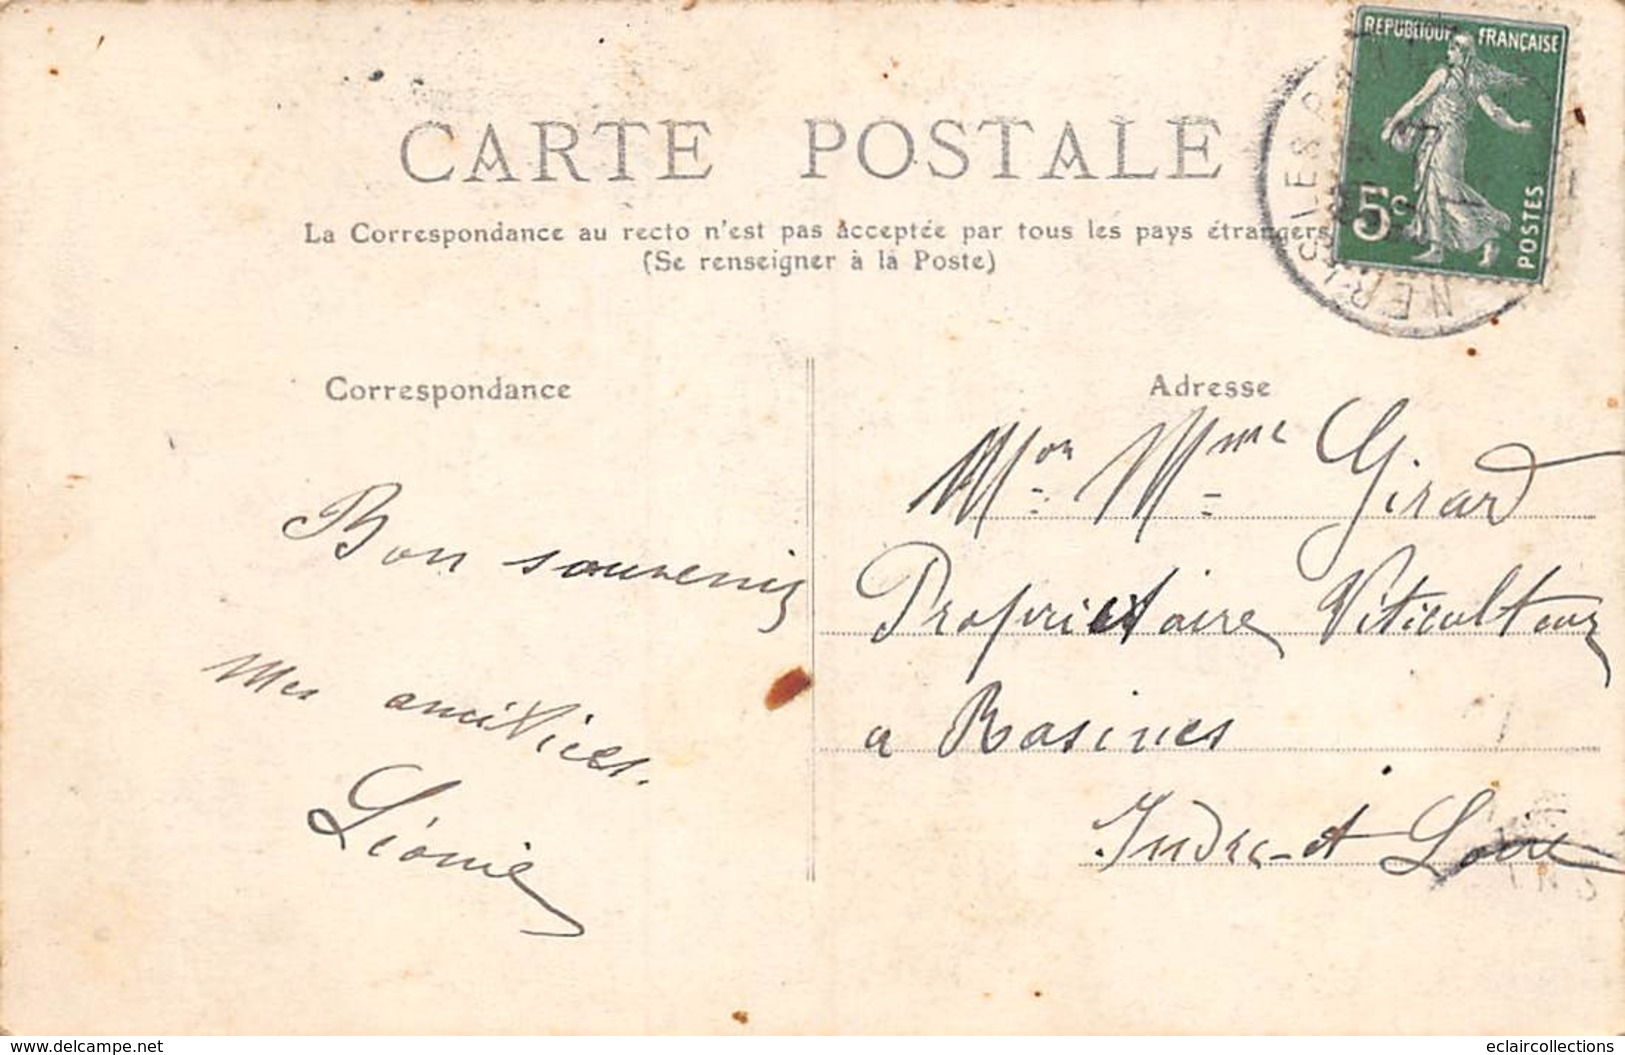 REPUBLIQUE FRANÇAISE
5c
POSTES
NERIS LES
CARTE POSTALE
La Correspondance au recto n'est pas acceptée par tous les pays étrangers
(Se renseigner à la Poste)
Correspondance
Bon souvenir
Mes amitiées.
Léonie
Adresse
Mon Mme Girard
Propriétaire Viticulteur
a Rasines
Indre-et Loire
delcampe.net
eclaircollections